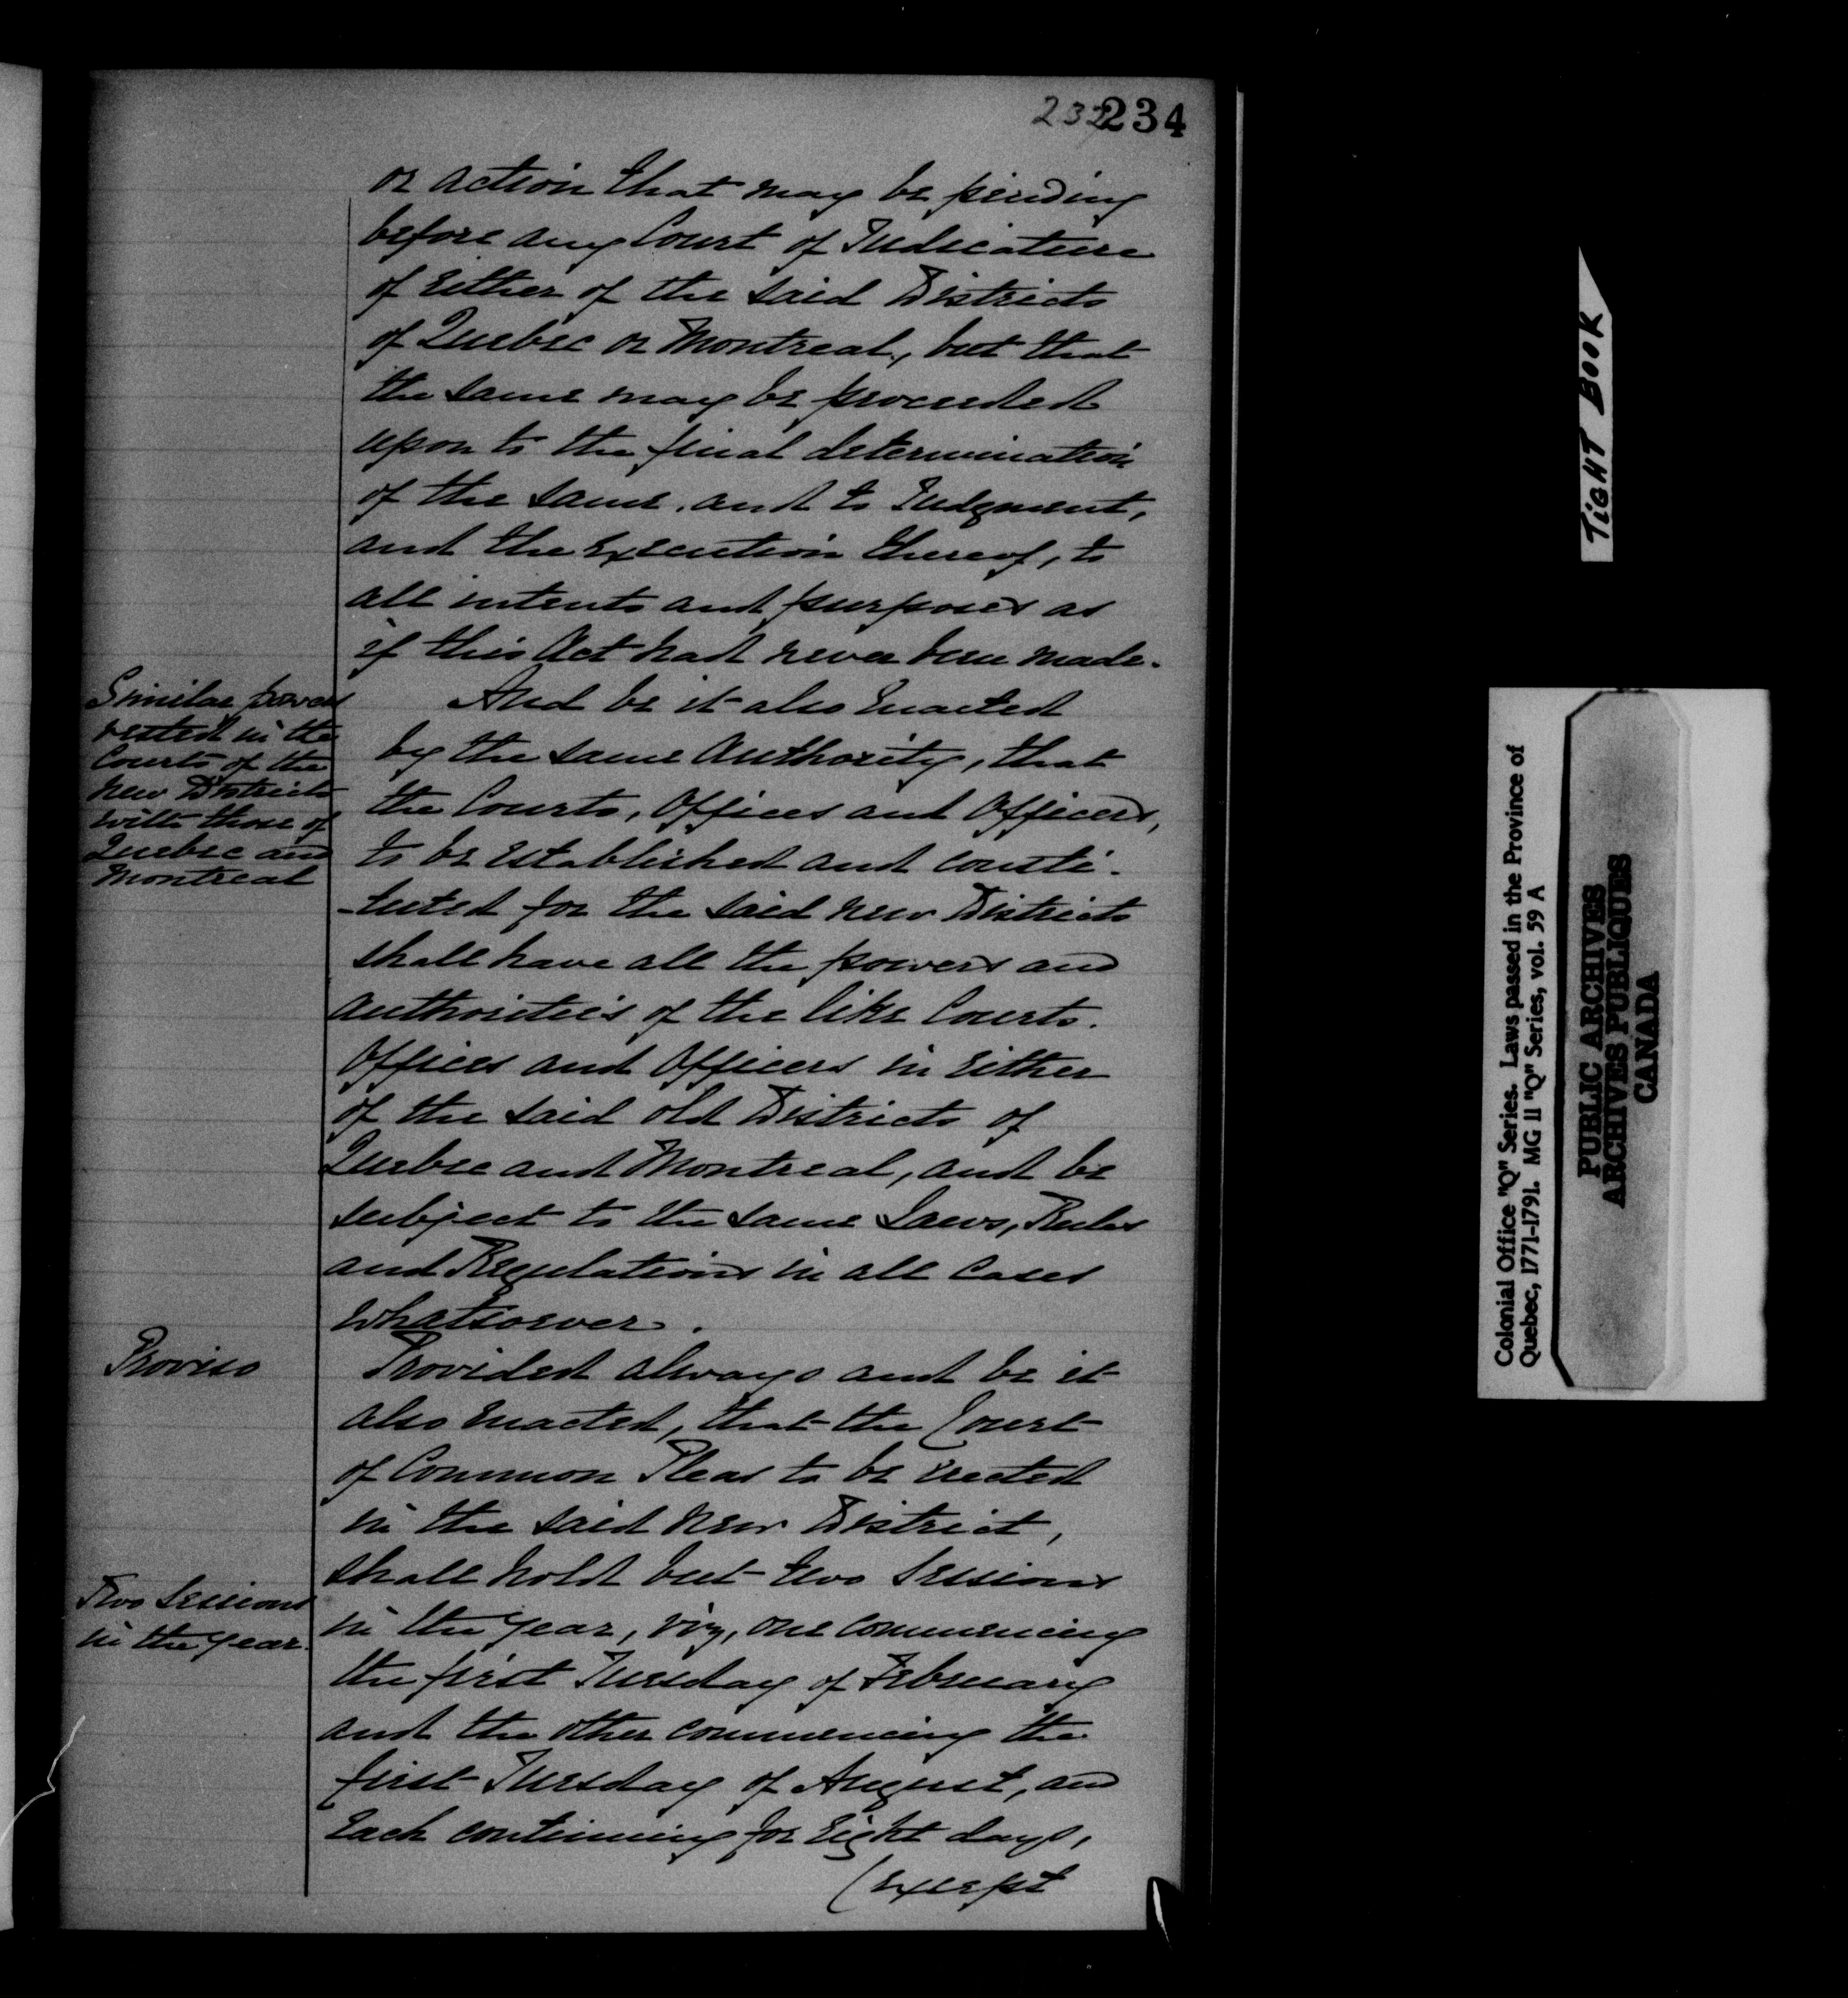 232 234
or action that may be pending
before any Court of Judicature
of Either of the said Districts
of Quebec or Montreal, but that
the same may be proceeded
upon to the final determination
of the same, and to Judgment,
and the Execution thereof, to
all intents and purposes as
if this Act had never been made.
Similar powers
vested in the
Courts of the
New Districts
with those of
Quebec and
Montreal
And be it also Enacted
by the same Authority, that
the Courts, Offices and Officers,
to be Established and consti-
-tuted for the said new Districts
shall have all the powers and
authorities of the like Courts.
Offices and Officers in Either
of the said old Districts of
Quebec and Montreal, and be
subject to the same Laws, Rules
and Regulations in all Cases
whatsoever.
Proviso
Provided always and be it
also Enacted, that the Court
of Common Pleas to be Erected
in the said New District,
shall hold but two Sessions
Two Sessions
in the year.
in the year, viz, one commencing
the first Tuesday of February
and the other commencing the
first Tuesday of August, and
Each continuing for Eight days,
(Except
TIGHT BOOK
Colonial Office "Q" Series. Laws passed in the Province of
Quebec, 1771-1791. MG 11 "Q" Series, vol. 59 A
PUBLIC ARCHIVES
ARCHIVES PUBLIQUES
CANADA